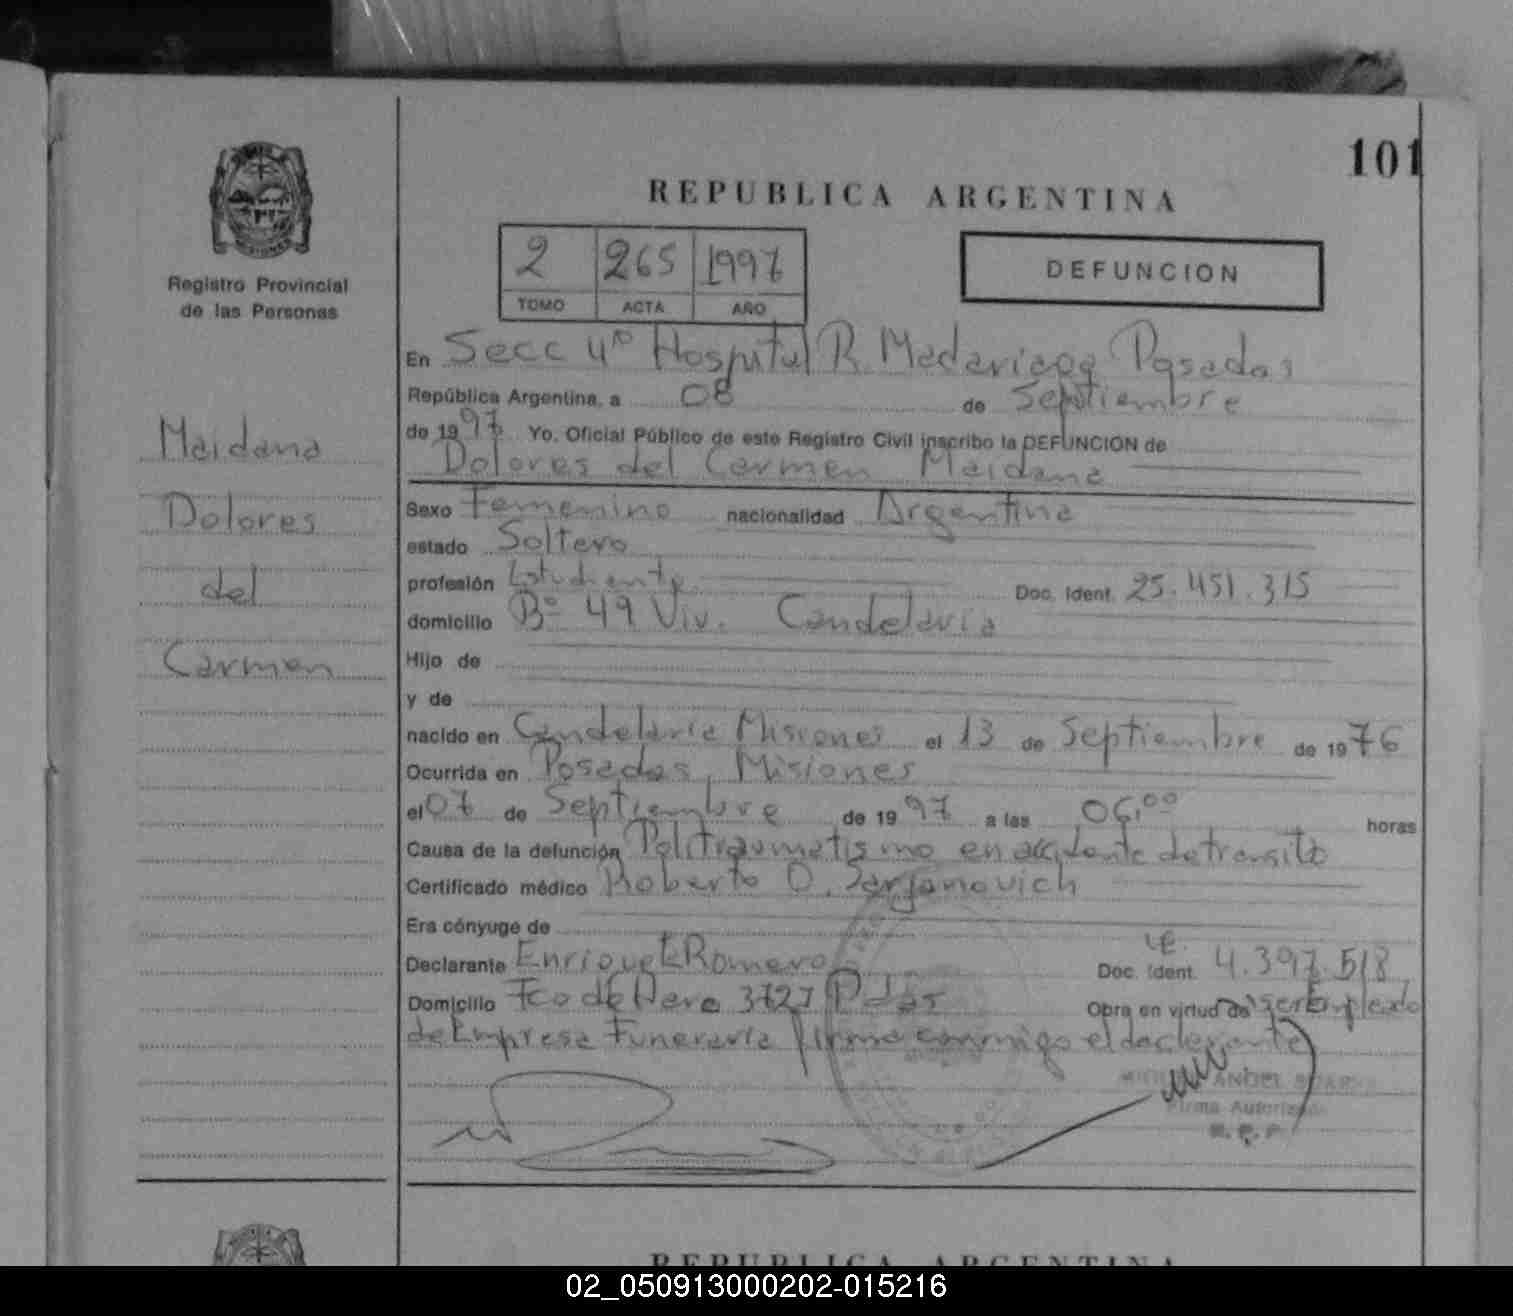 101
REPUBLICA ARGENTINA
Registro Provincial
de las Personas
2 265 1997
TOMO ACTA AÑO
DEFUNCION
En Secc 4º Hospital R. Madariaga Posadas
República Argentina, a 08 de Septiembre
de 1997 Yo, Oficial Público de este Registro Civil inscribo la DEFUNCION de
Dolores del Carmen Maidana
Maidana
Dolores
del
Carmen
Sexo Femenino nacionalidad Argentina
estado Soltero
profesión Estudiante Doc. Ident. 25.451.315
domicilio Bº 49 Viv. Candelaria
Hijo de
y de
nacido en Candelaria Misiones el 13 de Septiembre de 1976
Ocurrida en Posadas, Misiones
el 07 de Septiembre de 1997 a las 06,00 horas
Causa de la defunción Politraumatismo en accidente de transito
Certificado médico Roberto O. Serjanovich
Era cónyuge de
Declarante Enrique E Romero Doc. Ident. LE. 4.397.518
Domicilio Fco de Haro 3727 Pdas Obra en virtud de ser Empleado
de Empresa Funeraria firma conmigo el declarante
ANGEL
Firma Autorizada
REPUBLICA ARGENTINA
02_050913000202-015216